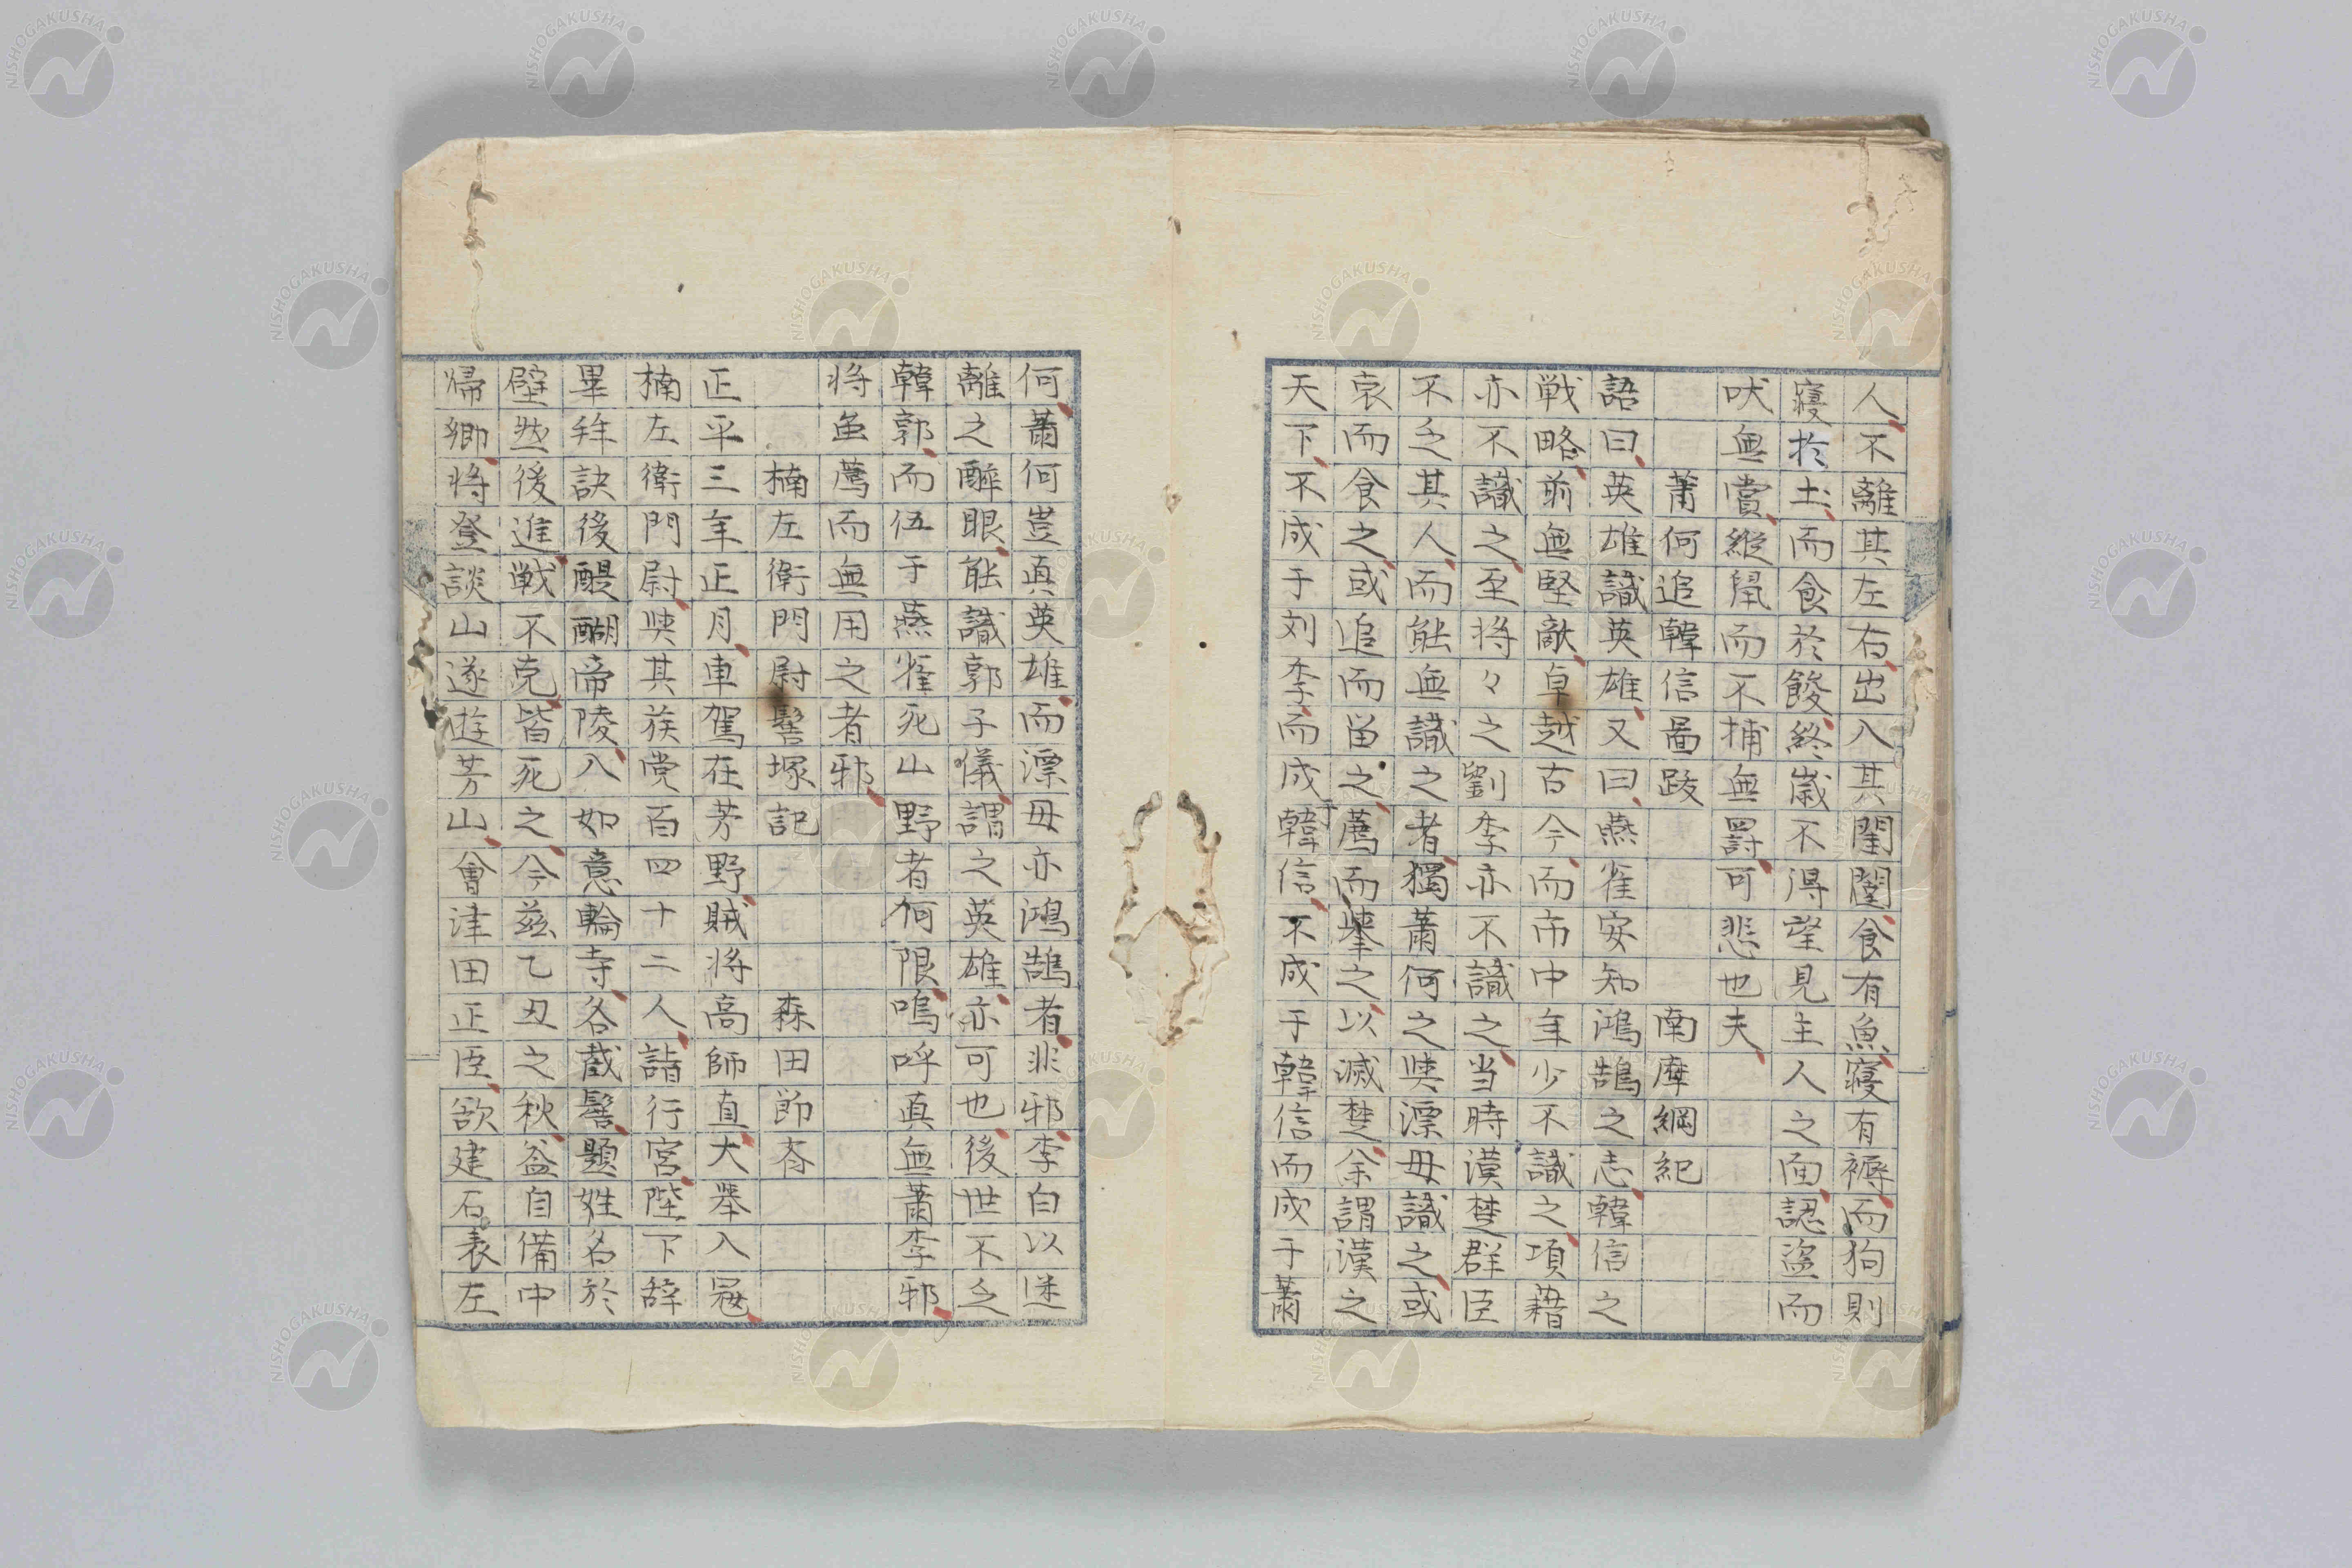 人不離其左右出入其閨闥食有魚寝有褥而狗則
寝於土而食於餕終歳不得望見主人之面認盗而
吠無賞縦鼠而不捕無罸可悲也夫
蕭何追韓信啚跋 南摩綱紀
語曰英雄識英雄又曰燕雀安知鴻鵠之志韓信之
戦略前無堅敵卓越古今而市中年少不識之項藉
亦不識之至将々之劉季亦不識之当時漢楚群臣
不乏其人而能無識之者獨蕭何之與漂母識之或
哀而食之或追而留之薦而擧之以滅楚余謂漢之
天下不成于刘季而成于韓信不成于韓信而成于蕭
何蕭何豈真英雄而漂母亦鴻鵠者非邪李白以迷
離之酔眼能識郭子儀謂之英雄亦可也後世不乏
韓郭而伍于燕雀死山野者何限嗚呼真無蕭李邪
将無薦而無用之者邪
楠左衛門尉髻塚記 森田節斎
正平三年正月車駕在芳野賊将高師直大挙入冦
楠左衛門尉與其族党百四十二人詣行宮陛下辞
畢拜訣後醍醐帝陵入如意輪寺各截髻題姓名於
壁然後進戦不克皆死之今茲乙丑之秋益自備中
帰郷将登談山遂遊芳山會津田正臣欲建石表左
NISHOGAKUSHA